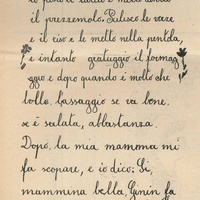 il prezzemolo. Pulisco le rave
e il riso e le metto nella pentola,
e intanto grattuggio il formag
ggio e dopo quando è molto che
bolle, l'assaggio se va bene,
se è salata, abbastanza.
Dopo, la mia mamma mi
fa scopare, e io dico: Si,
mammina bella, Ginin fa